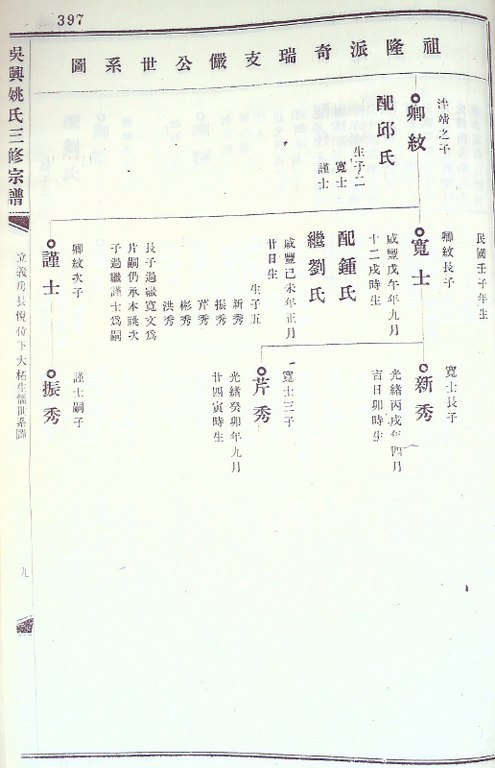 397
祖隆派奇瑞支儼公世系圖
吳興姚氏三修宗譜
立義房長悅位下大柘生儒世系圖
九
津靖之子
卿紋
配邱氏
生子二
寬士
謹士
民國壬子年生
卿紋長子
寬士
咸豐戊午年九月
十二戌時生
配鍾氏
繼劉氏
咸豐己未年正月
廿日生
生子五
新秀
振秀
芹秀
彬秀
洪秀
長子過繼寬文爲
片嗣仍承本祧次
子過繼謹士爲嗣
卿紋次子
謹士
寬士長子
新秀
光緒丙戌年四月
吉日卯時生
寬士三子
芹秀
光緒癸卯年九月
廿四寅時生
謹士嗣子
振秀